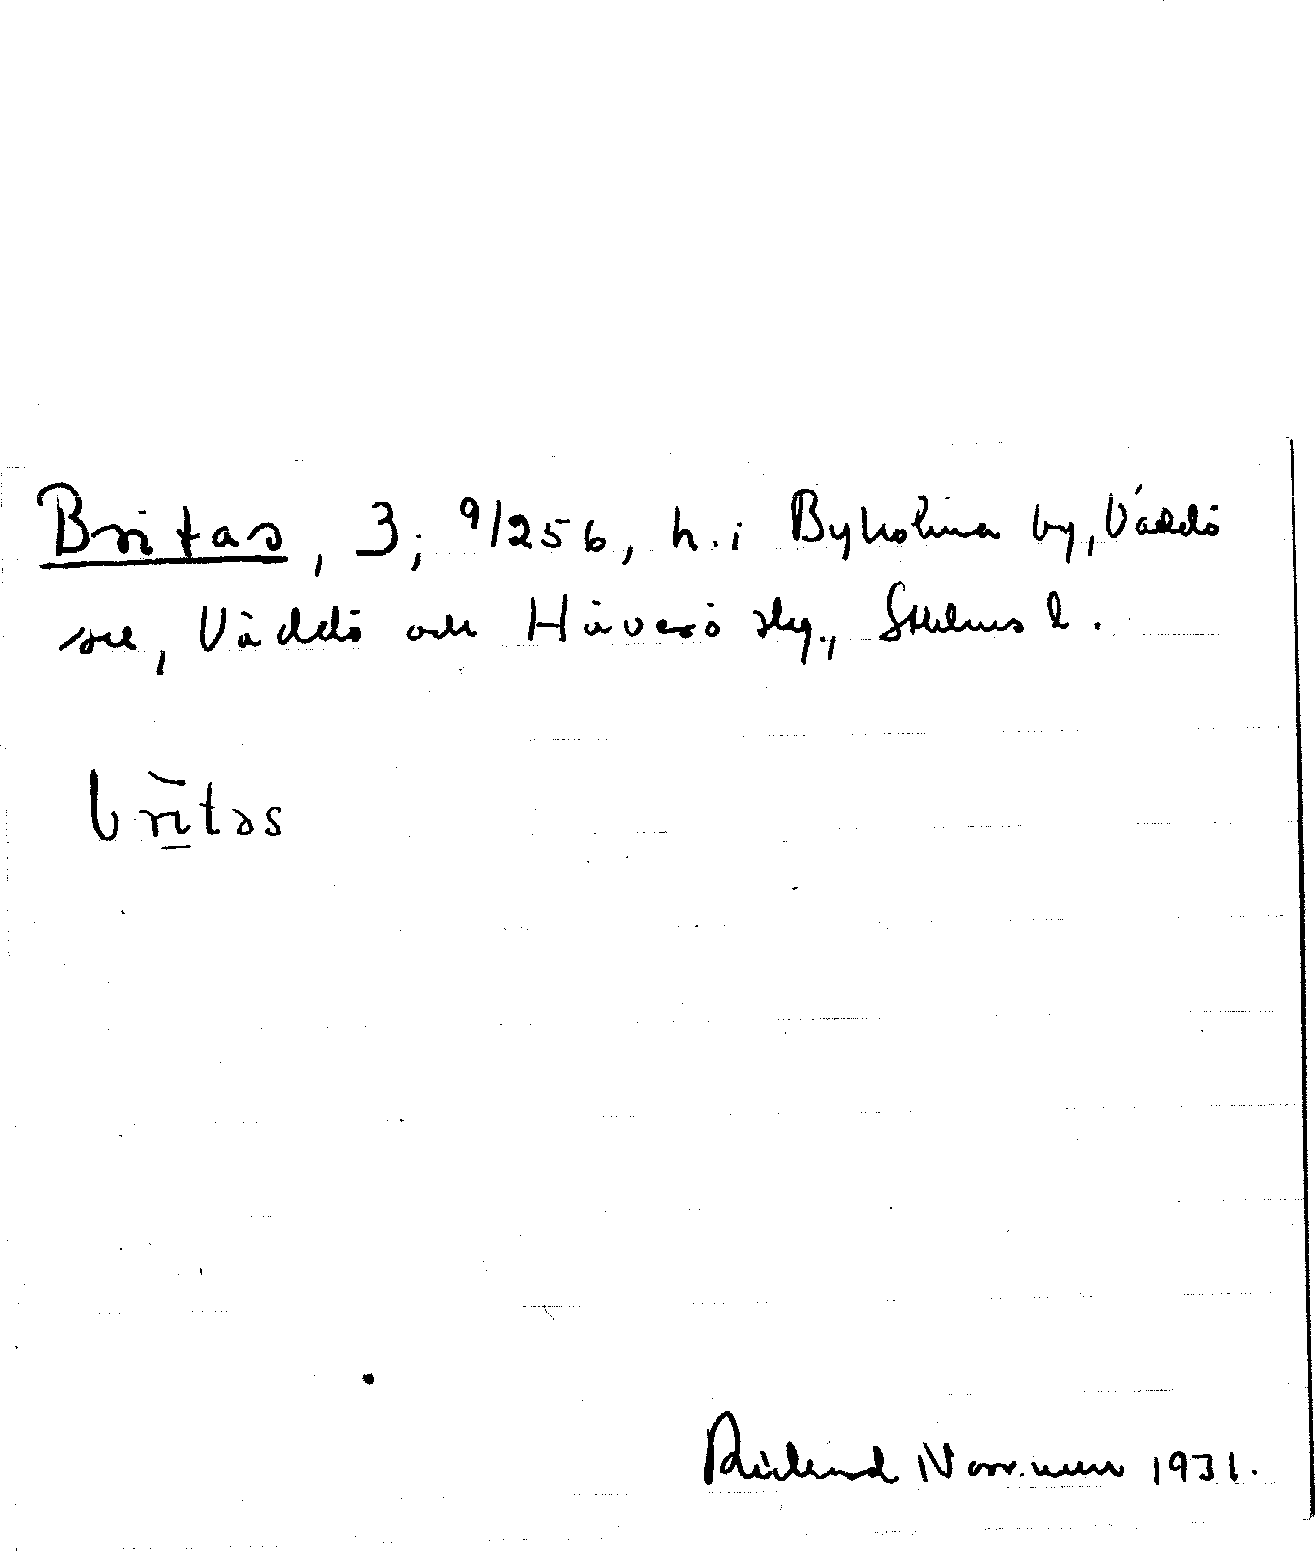 Britas, 3; 9/256, h. i Byholma by, Väddö
sn, Väddö och Häverö skg., Sthlms l.
brı̀tas
Richard Norrman 1931.